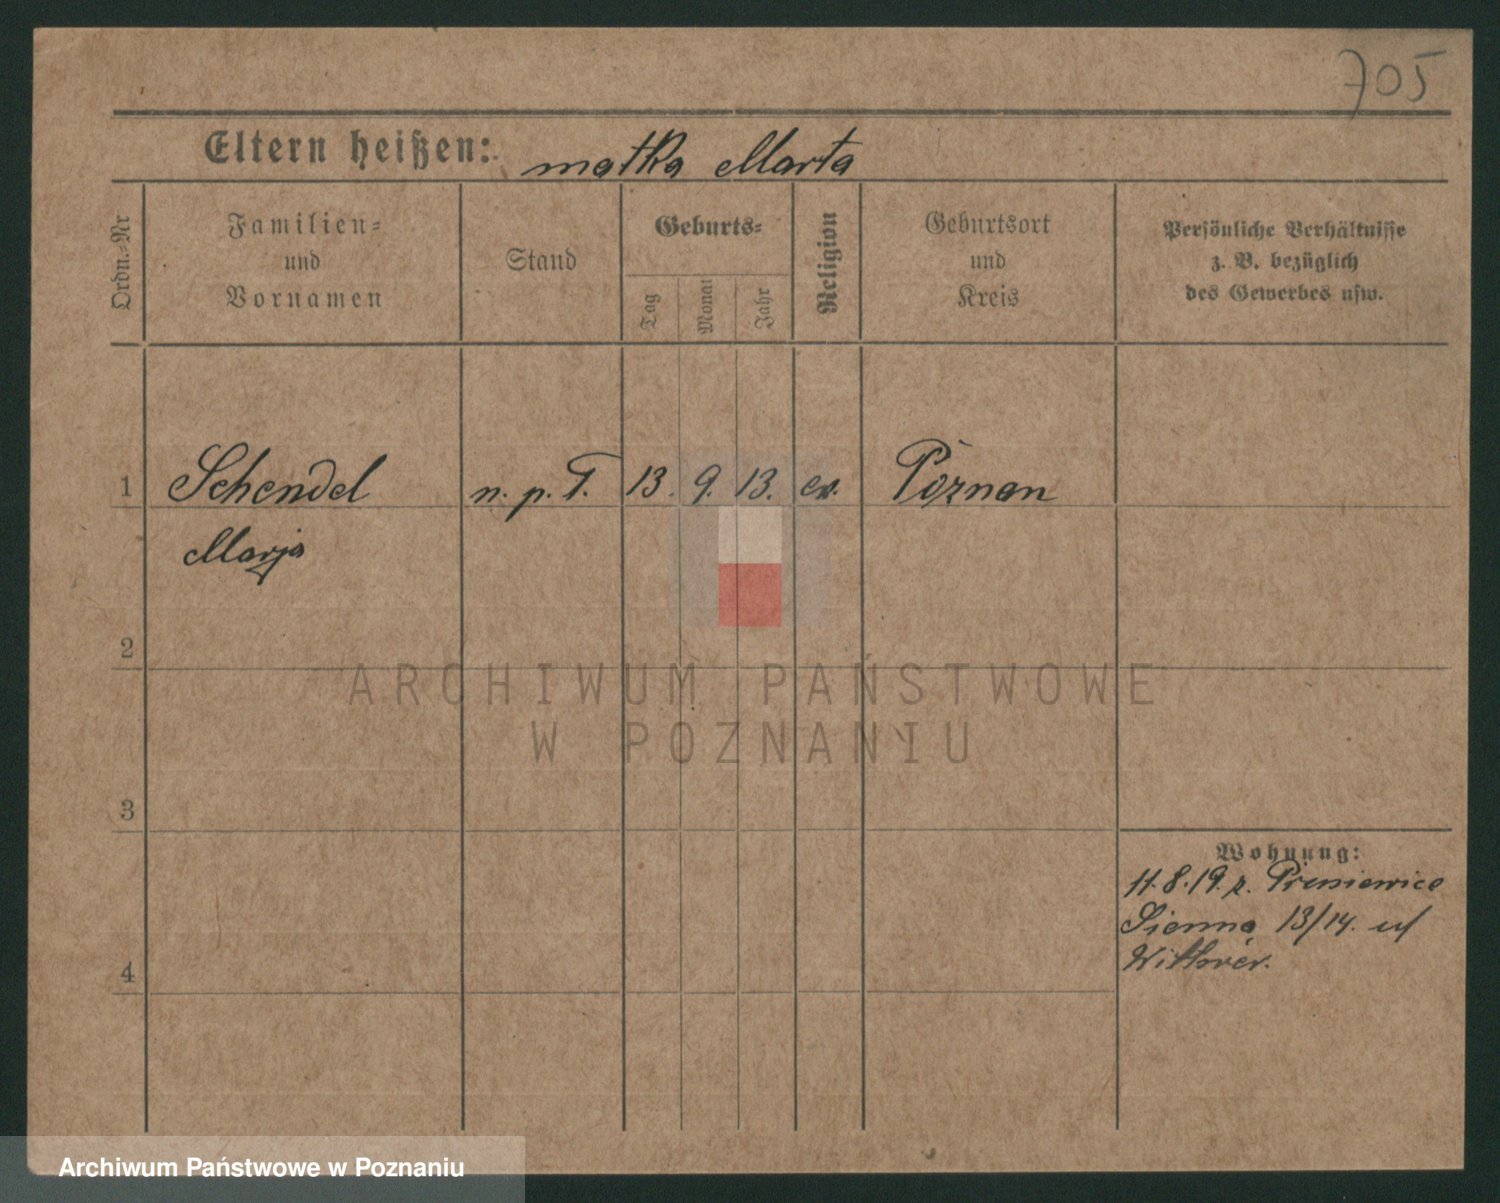 705
Eltern heißen: matka Marta
Ordn.-Nr
Familien-
und
Vornamen
Stand
Geburts-
Tag
Monat
Jahr
Religion
Geburtsort
und
Kreis
Persönliche Verhältnisse
z. B. bezüglich
des Gewerbes usw.
1 Schendel n. p. T. 13. 9. 13. ev. Poznan
Marja
2
ARCHIWUM PAŃSTWOWE
W POZNANIU
3
Wohnung:
11.8.19. z.
Sienna 13/14. u/
4
Archiwum Państwowe w Poznaniu